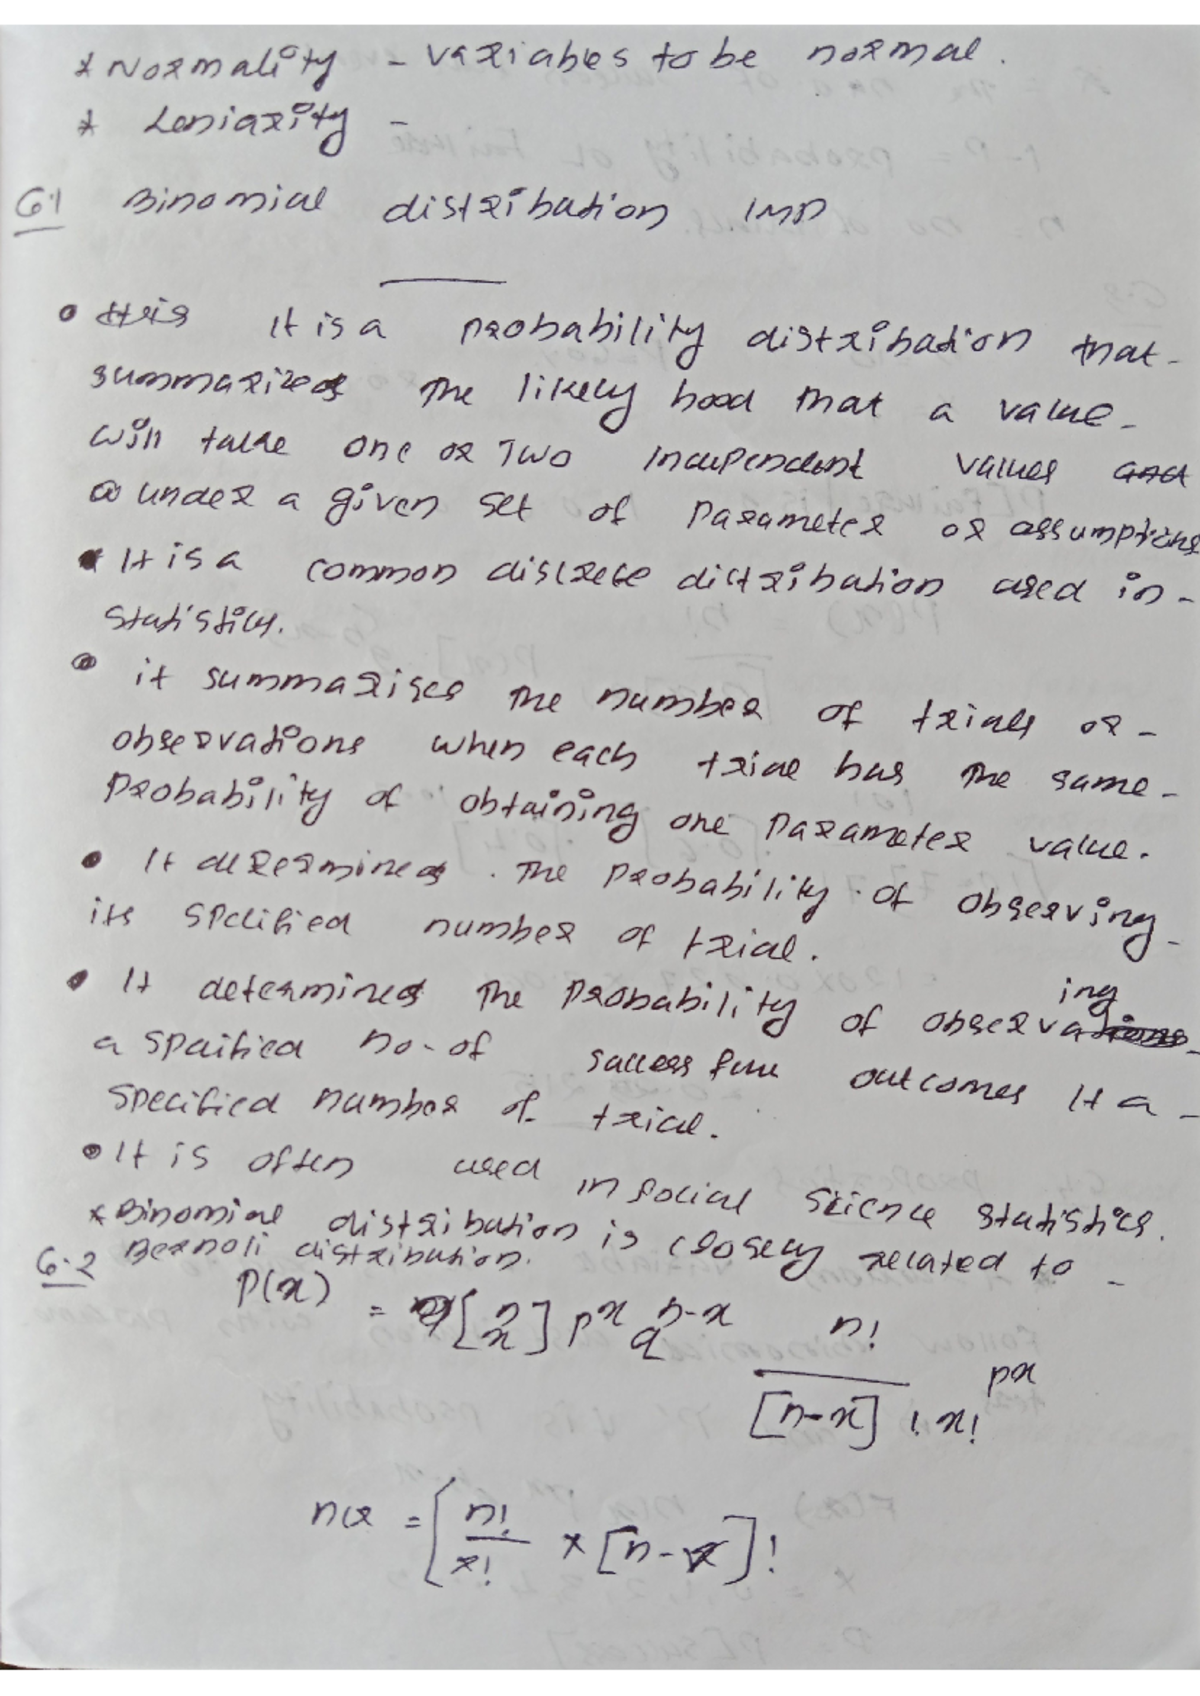 * Normality - variables to be normal.
* Leniarity -
6.1 Binomial distribution IMP
• It is a probability distribution that-
summarizes The likely hood that a value-
will take one or Two independent values and
under a given set of Parameter or assumptions
• It is a common discrete distribution used in-
statistics.
• it summarises The number of trials or-
observations when each trial has The same-
Probability of obtaining one Parameter value.
• It determines The Probability of observing-
its specified number of trial.
• It determines The Probability of observing-
a specified no-of successful outcomes It a-
specified number of trial.
• It is often used in social science statistics.
* Binomial distribution is closely related to-
6.2 Bernoli distribution.
P(x) = [n x] p^x q^n-x n! / [n-x] ! x! px
ncx = [n! / x! × [n-x]!